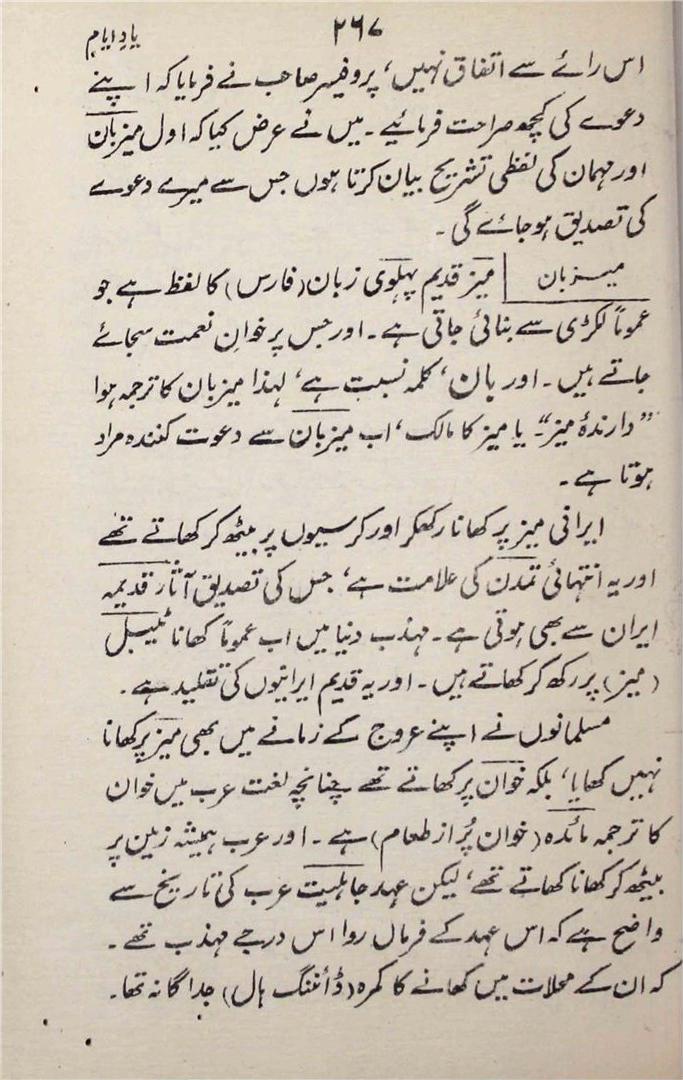 ۲۶۷
یادِ ایام
اس رائے سے اتفاق نہیں، پروفیسر صاحب نے فرمایا کہ اپنے
دعوے کی کچھ صراحت فرمائیے۔ میں نے عرض کیا کہ اول میزبان
اور مہمان کی لفظی تشریح بیان کرتا ہوں جس سے میرے دعوے
کی تصدیق ہو جائے گی۔
میزبان | میز قدیم پہلوی زبان (فارس) کا لفظ ہے جو
عموماً لکڑی سے بنائی جاتی ہے۔ اور جس پر خوانِ نعمت سجائے
جاتے ہیں۔ اور بان، کلمہ نسبت ہے، لہذا میزبان کا ترجمہ ہوا
”دارندۂ میز“۔ یا میز کا مالک، اب میزبان سے دعوت کنندہ مراد
ہوتا ہے۔
ایرانی میز پر کھانا رکھکر اور کرسیوں پر بیٹھ کر کھاتے تھے
اور یہ انتہائی تمدن کی علامت ہے، جس کی تصدیق آثار قدیمہ
ایران سے بھی ہوتی ہے۔ مہذب دنیا میں اب عموماً کھانا ٹیبل
(میز) پر رکھ کر کھاتے ہیں۔ اور یہ قدیم ایرانیوں کی تقلید ہے۔
مسلمانوں نے اپنے عروج کے زمانے میں بھی میز پر کھانا
نہیں کھایا، بلکہ خوان پر کھاتے تھے چنانچہ لغت عرب میں خوان
کا ترجمہ مائدہ (خوان پُر از طعام) ہے۔ اور عرب ہمیشہ زمین پر
بیٹھ کر کھانا کھاتے تھے، لیکن عہد جاہلیت عرب کی تاریخ سے
واضح ہے کہ اس عہد کے فرمال روا اس درجے مہذب تھے۔
کہ ان کے محلات میں کھانے کا کمرہ (ڈائننگ ہال) جداگانہ تھا۔